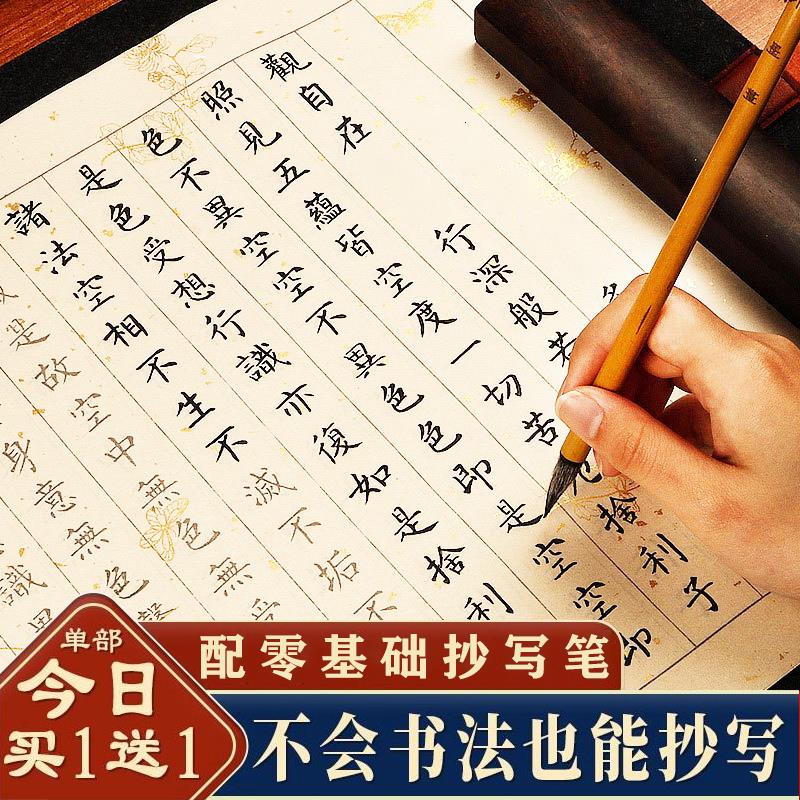 觀自在行深般若
照見五蘊皆空度一切苦捨利子
色不異空空不異色色即是空空即
是色受想行識亦復如是捨利
諸法空相不生不滅不垢不
是故空中無色無受
身意無色
識
配零基础抄写笔
单部
今日
买1送1
不会书法也能抄写